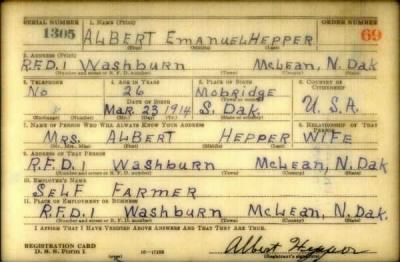 SERIAL NUMBER 1. NAME (Print) ORDER NUMBER
1305 ALBERT EmanuEL HEPPER 69
(First) (Middle) (Last)
2. ADDRESS (Print)
R.F.D.1 Washburn McLean, N. Dak
(Number and street or R. F. D. number) (Town) (County) (State)
3. TELEPHONE 4. AGE IN YEARS 5. PLACE OF BIRTH 6. COUNTRY OF CITIZENSHIP
No 26 Mobridge
DATE OF BIRTH (Town or county)
MAR 23 1914 S. Dak U.S.A.
(Exchange) (Number) (Mo.) (Day) (Yr.) (State or country)
7. NAME OF PERSON WHO WILL ALWAYS KNOW YOUR ADDRESS 8. RELATIONSHIP OF THAT PERSON
MRS. ALBERT HEPPER WIFE
(Mr., Mrs., Miss) (First) (Middle) (Last)
9. ADDRESS OF THAT PERSON
R.F.D.1 Washburn McLean, N. Dak
(Number and street or R. F. D. number) (Town) (County) (State)
10. EMPLOYER'S NAME
SELF FARMER
11. PLACE OF EMPLOYMENT OR BUSINESS
R.F.D.1 Washburn McLean, N. Dak.
(Number and street or R. F. D. number) (Town) (County) (State)
I AFFIRM THAT I HAVE VERIFIED ABOVE ANSWERS AND THAT THEY ARE TRUE.
REGISTRATION CARD
D. S. S. Form 1 (over) Albert Hepper
(Registrant's signature)